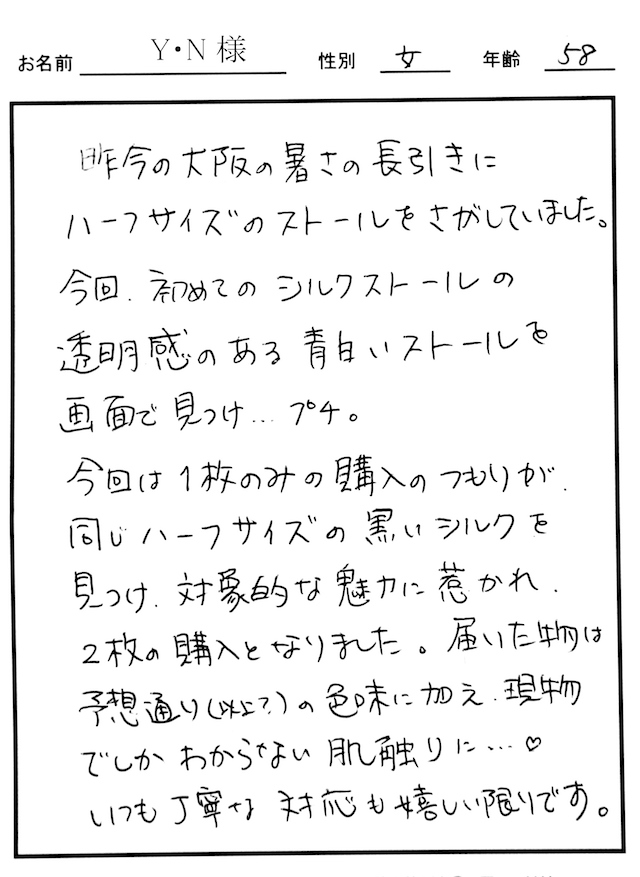 お名前 Y・N 様 性別 女 年齢 58
昨今の大阪の暑さの長引きに
ハーフサイズのストールをさがしていました。
今回、初めてのシルクストールの
透明感のある青白いストールを
画面で見つけ…プチ。
今回は1枚のみの購入のつもりが、
同じハーフサイズの黒いシルクを
見つけ、対象的な魅力に惹かれ、
2枚の購入となりました。届いた物は
予想通り(以上?)の色味に加え、現物
でしかわからない肌触りに…♡
いつも丁寧な対応も嬉しい限りです。